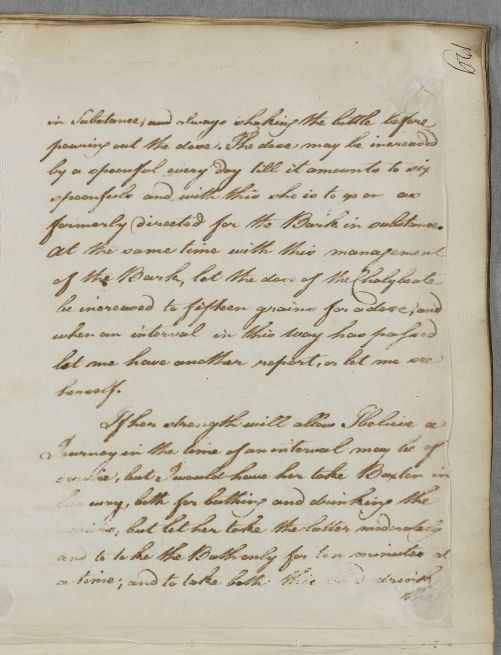 129
in Substance; and always shaking the bottle before
pouring out the dose. The dose may be increased
by a spoonful every Day till it amounts to six
spoonfuls and with this she is to go on as
formerly directed for the Bark in substance.
At the same time with this management
of the Bark, let the dose of the Chalybeate
be increased to fifteen grains for a dose; and
when an interval in this way has passed
let me have another report, or let me see
herself.
If her strength will allow I believe a
Journey in the time of an interval may be of
but I would have her take Buxton in
way, both for bathing and drinking the
but let her take the latter moderately
and to take the Bath only for ten minutes at
a time; and to take both this and drink